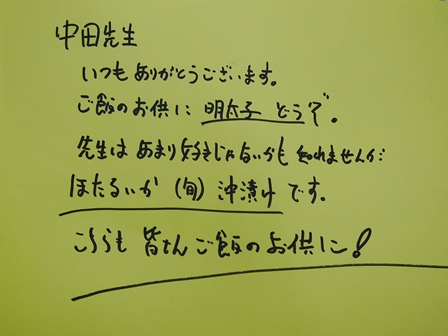 中田先生
いつもありがとうございます。
ご飯のお供に 明太子 どうぞ。
先生は あまり好きじゃないかも 知れませんが
ほたるいか (旬) 沖漬け です。
こちらも 皆さん ご飯のお供に!